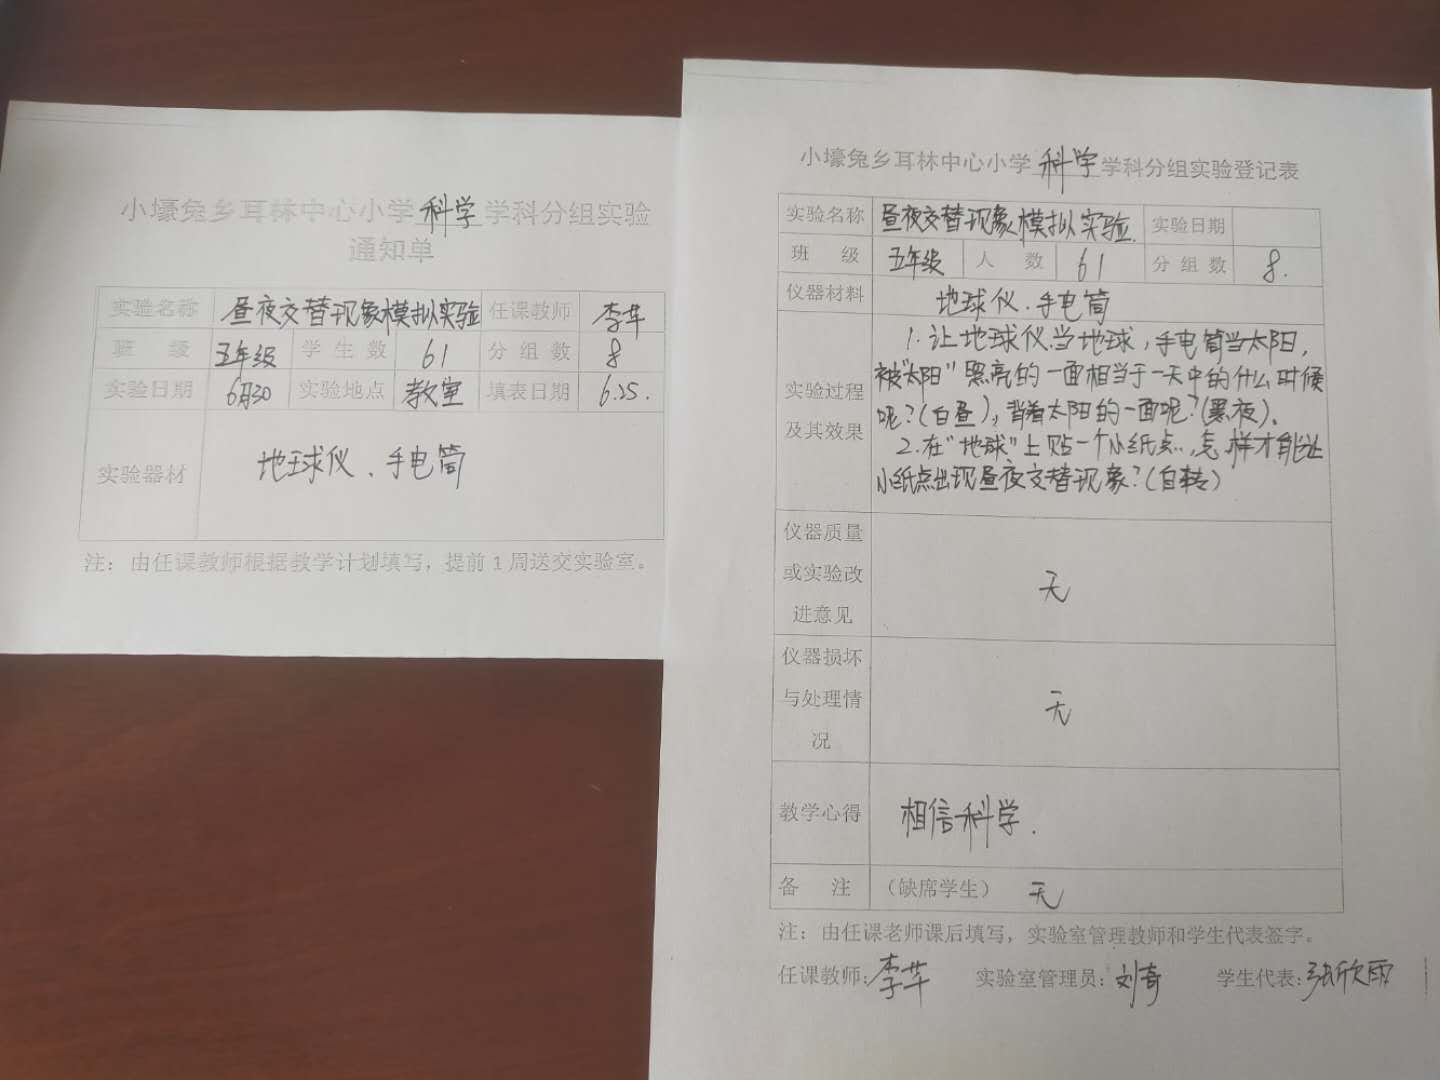 小壕兔乡耳林中心小学 科学 学科分组实验
通知单
实验名称 昼夜交替现象模拟实验 任课教师 李芊
班 级 五年级 学 生 数 61 分 组 数 8
实验日期 6月30 实验地点 教室 填表日期 6.25.
实验器材 地球仪、手电筒
注：由任课教师根据教学计划填写，提前1周送交实验室。
小壕兔乡耳林中心小学 科学 学科分组实验登记表
实验名称 昼夜交替现象模拟实验. 实验日期
班 级 五年级 人 数 61 分 组 数 8.
仪器材料 地球仪、手电筒
实验过程
及其效果
1. 让地球仪当地球，手电筒当太阳，
被“太阳”照亮的一面相当于一天中的什么时候
呢？(白昼)，背着太阳的一面呢？(黑夜)。
2. 在“地球”上贴一个小纸点，怎样才能让
小纸点出现昼夜交替现象？(自转)
仪器质量
或实验改
进意见
无
仪器损坏
与处理情
况
无
教学心得 相信科学.
备 注 （缺席学生） 无
注：由任课老师课后填写，实验室管理教师和学生代表签字。
任课教师：李芊 实验室管理员：刘奇 学生代表：张欣雨